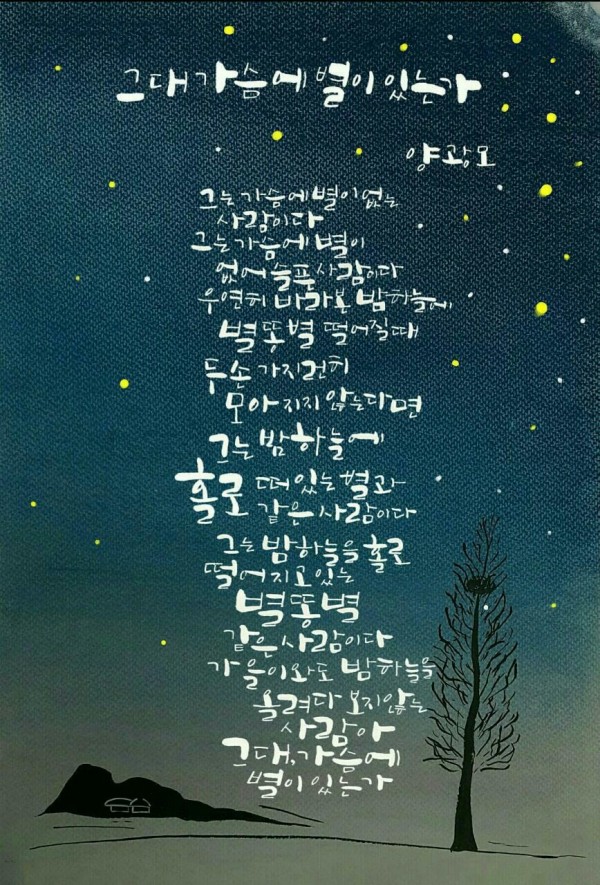 그대 가슴에 별이 있는가
양광모
그는 가슴에 별이 없는
사람이다
그는 가슴에 별이
없어 슬픈 사람이다
우연히 바라본 밤하늘에
별똥별 떨어질 때
두 손 가지런히
모아지지 않는다면
그는 밤하늘에
홀로 떠 있는 별과
같은 사람이다
그는 밤하늘을 홀로
떨어지고 있는
별똥별
같은 사람이다
가을이 와도 밤하늘을
올려다 보지 않는
사람아
그대, 가슴에
별이 있는가